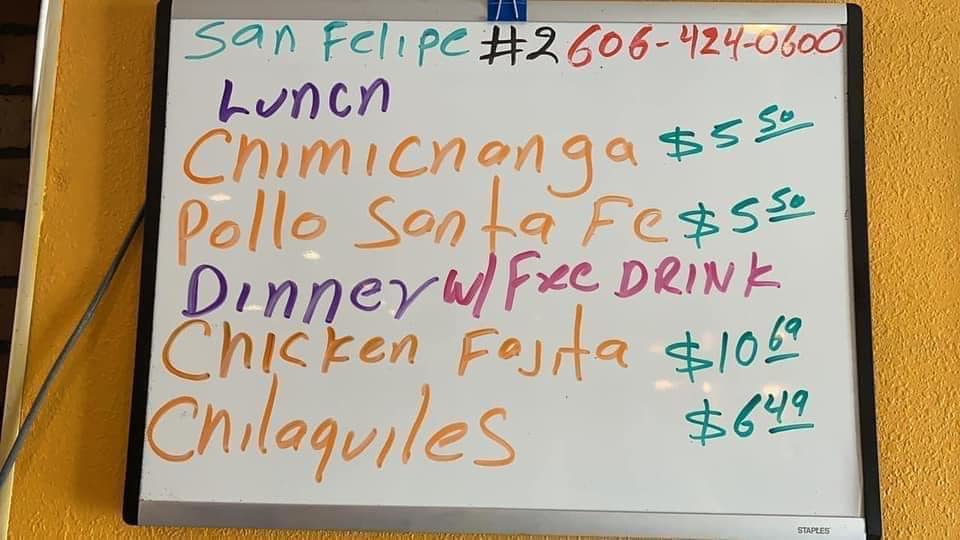 San Felipe #2 606-424-0600
Lunch
Chimichanga $5 50
Pollo Santa Fe $5 50
Dinner w/ Free DRINK
Chicken Fajita $10 69
Chilaquiles $6 49
STAPLES